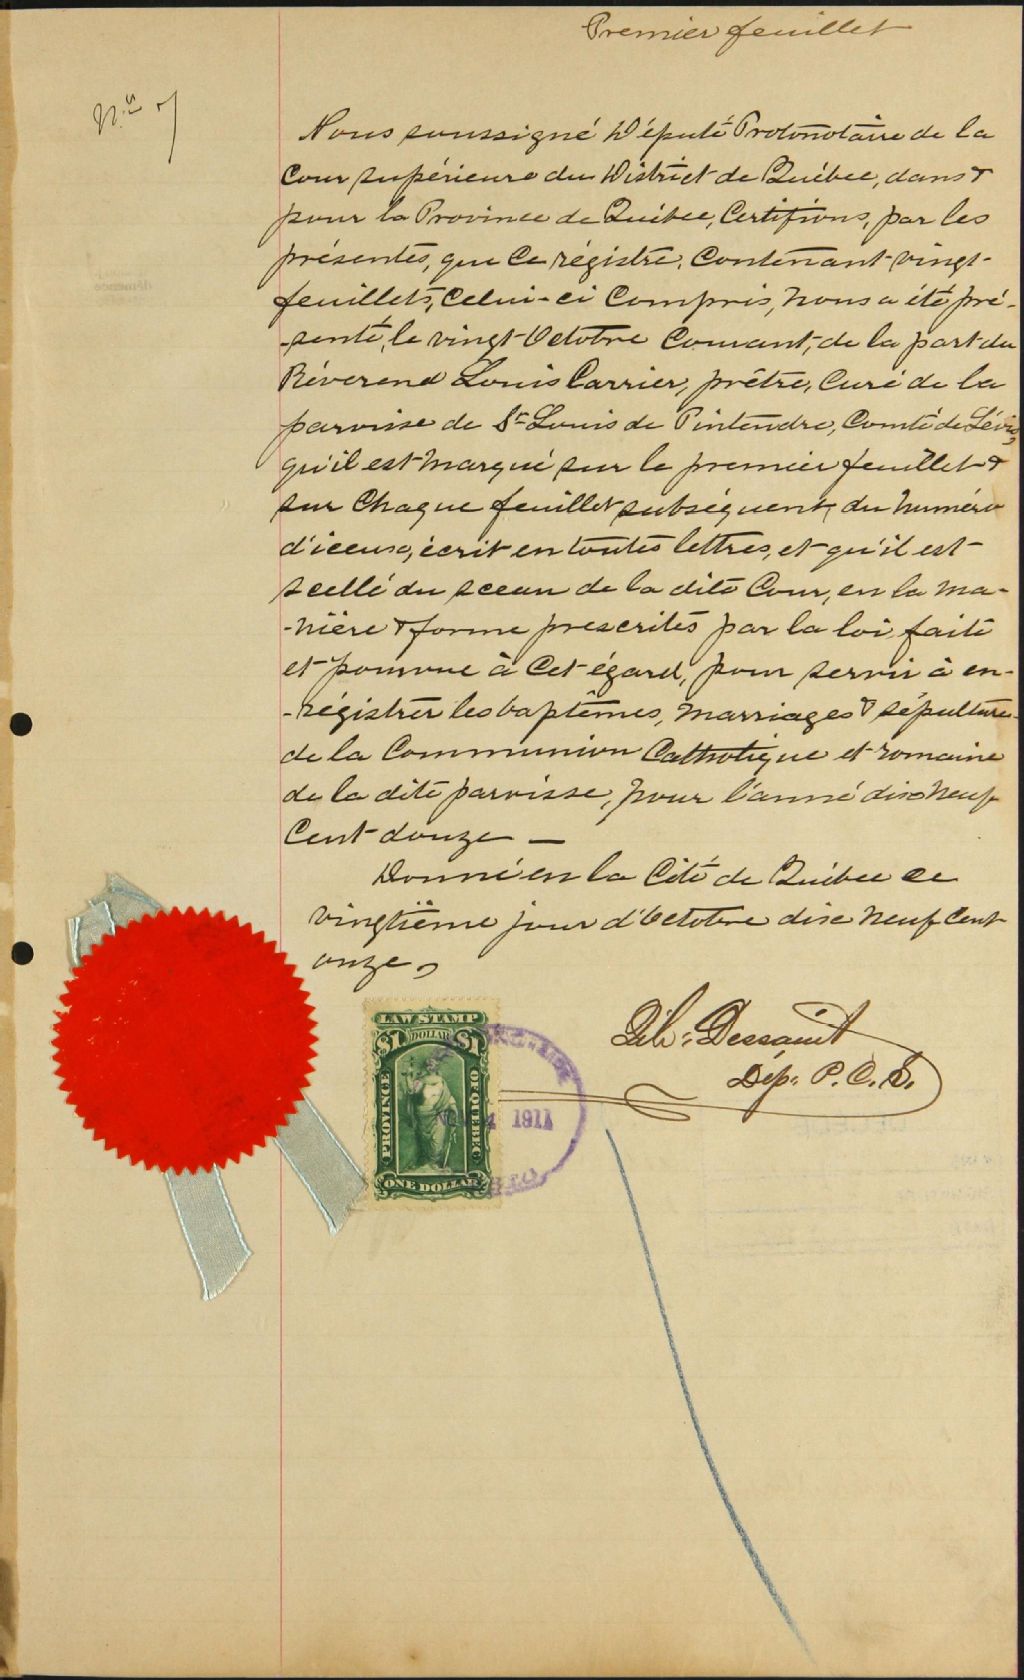 Premier feuillet
Nous soussigné Député Protonotaire de la
Cour supérieure du District de Québec, dans &
pour la Province de Québec, Certifions, par les
présentes, que Ce régistre, Contenant vingt-
feuillets, Celui-ci Compris, nous a été pré-
-senté, le vingt Octobre Courant, de la part du
Révérend Louis Carrier, prêtre, Curé de la
paroisse de St Louis de Pintendre, Comté de Lévis,
qu'il est marqué sur le premier feuillet &
sur Chaque feuillet subséquent, du numéro
d'iceux, écrit en toutes lettres, et qu'il est
scellé du sceau de la dite Cour, en la ma-
-nière & forme prescrites par la loi faite
et pourvue à Cet égard, pour servir à en-
-régistrer les baptêmes, marriages & sépultures
de la Communion Catholique et romaine
de la dite paroisse, pour l'anné dix neuf
Cent douze —
Donné en la Cité de Québec ce
vingtième jour d'Octobre dix neuf Cent
onze,
LAW STAMP
$1 DOLLAR $1
PROVINCE OF QUEBEC
ONE DOLLAR
1911
Dessaint
Dép. P. C. S.